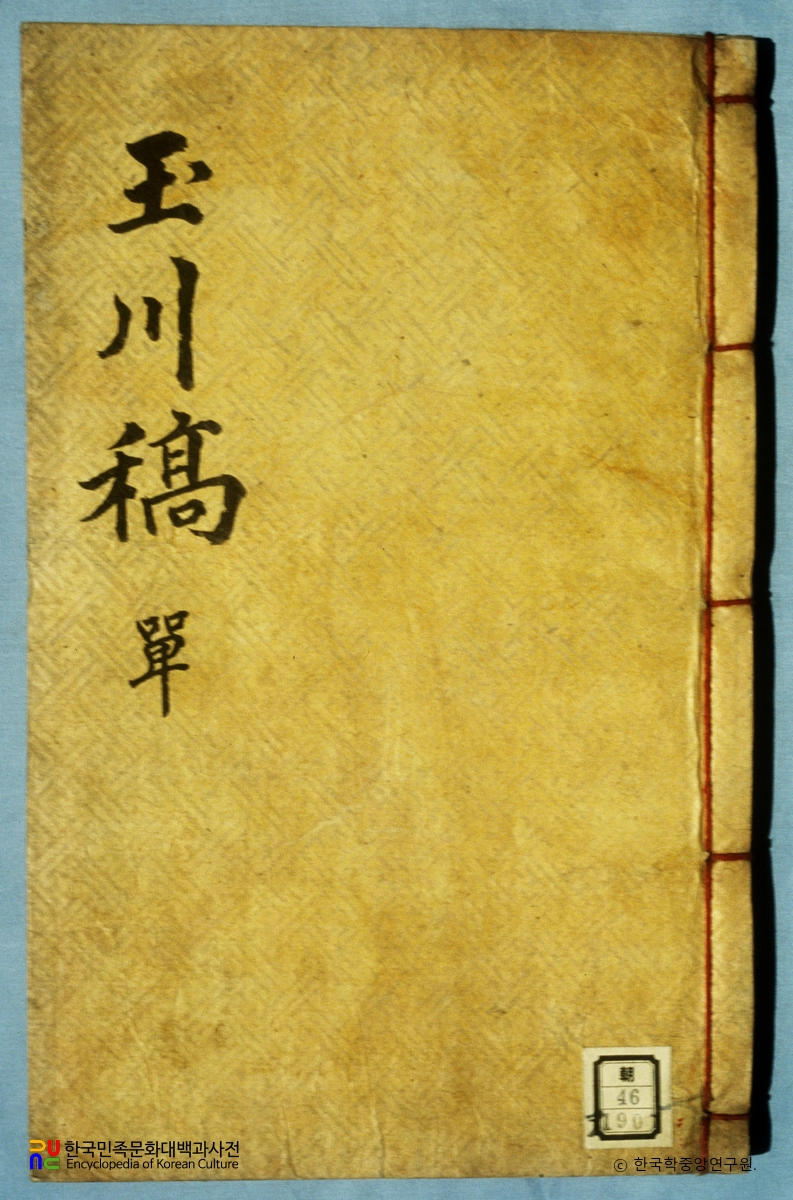 玉川稿 單
朝
46
190
한국민족문화대백과사전
Encyclopedia of Korean Culture
© 한국학중앙연구원.